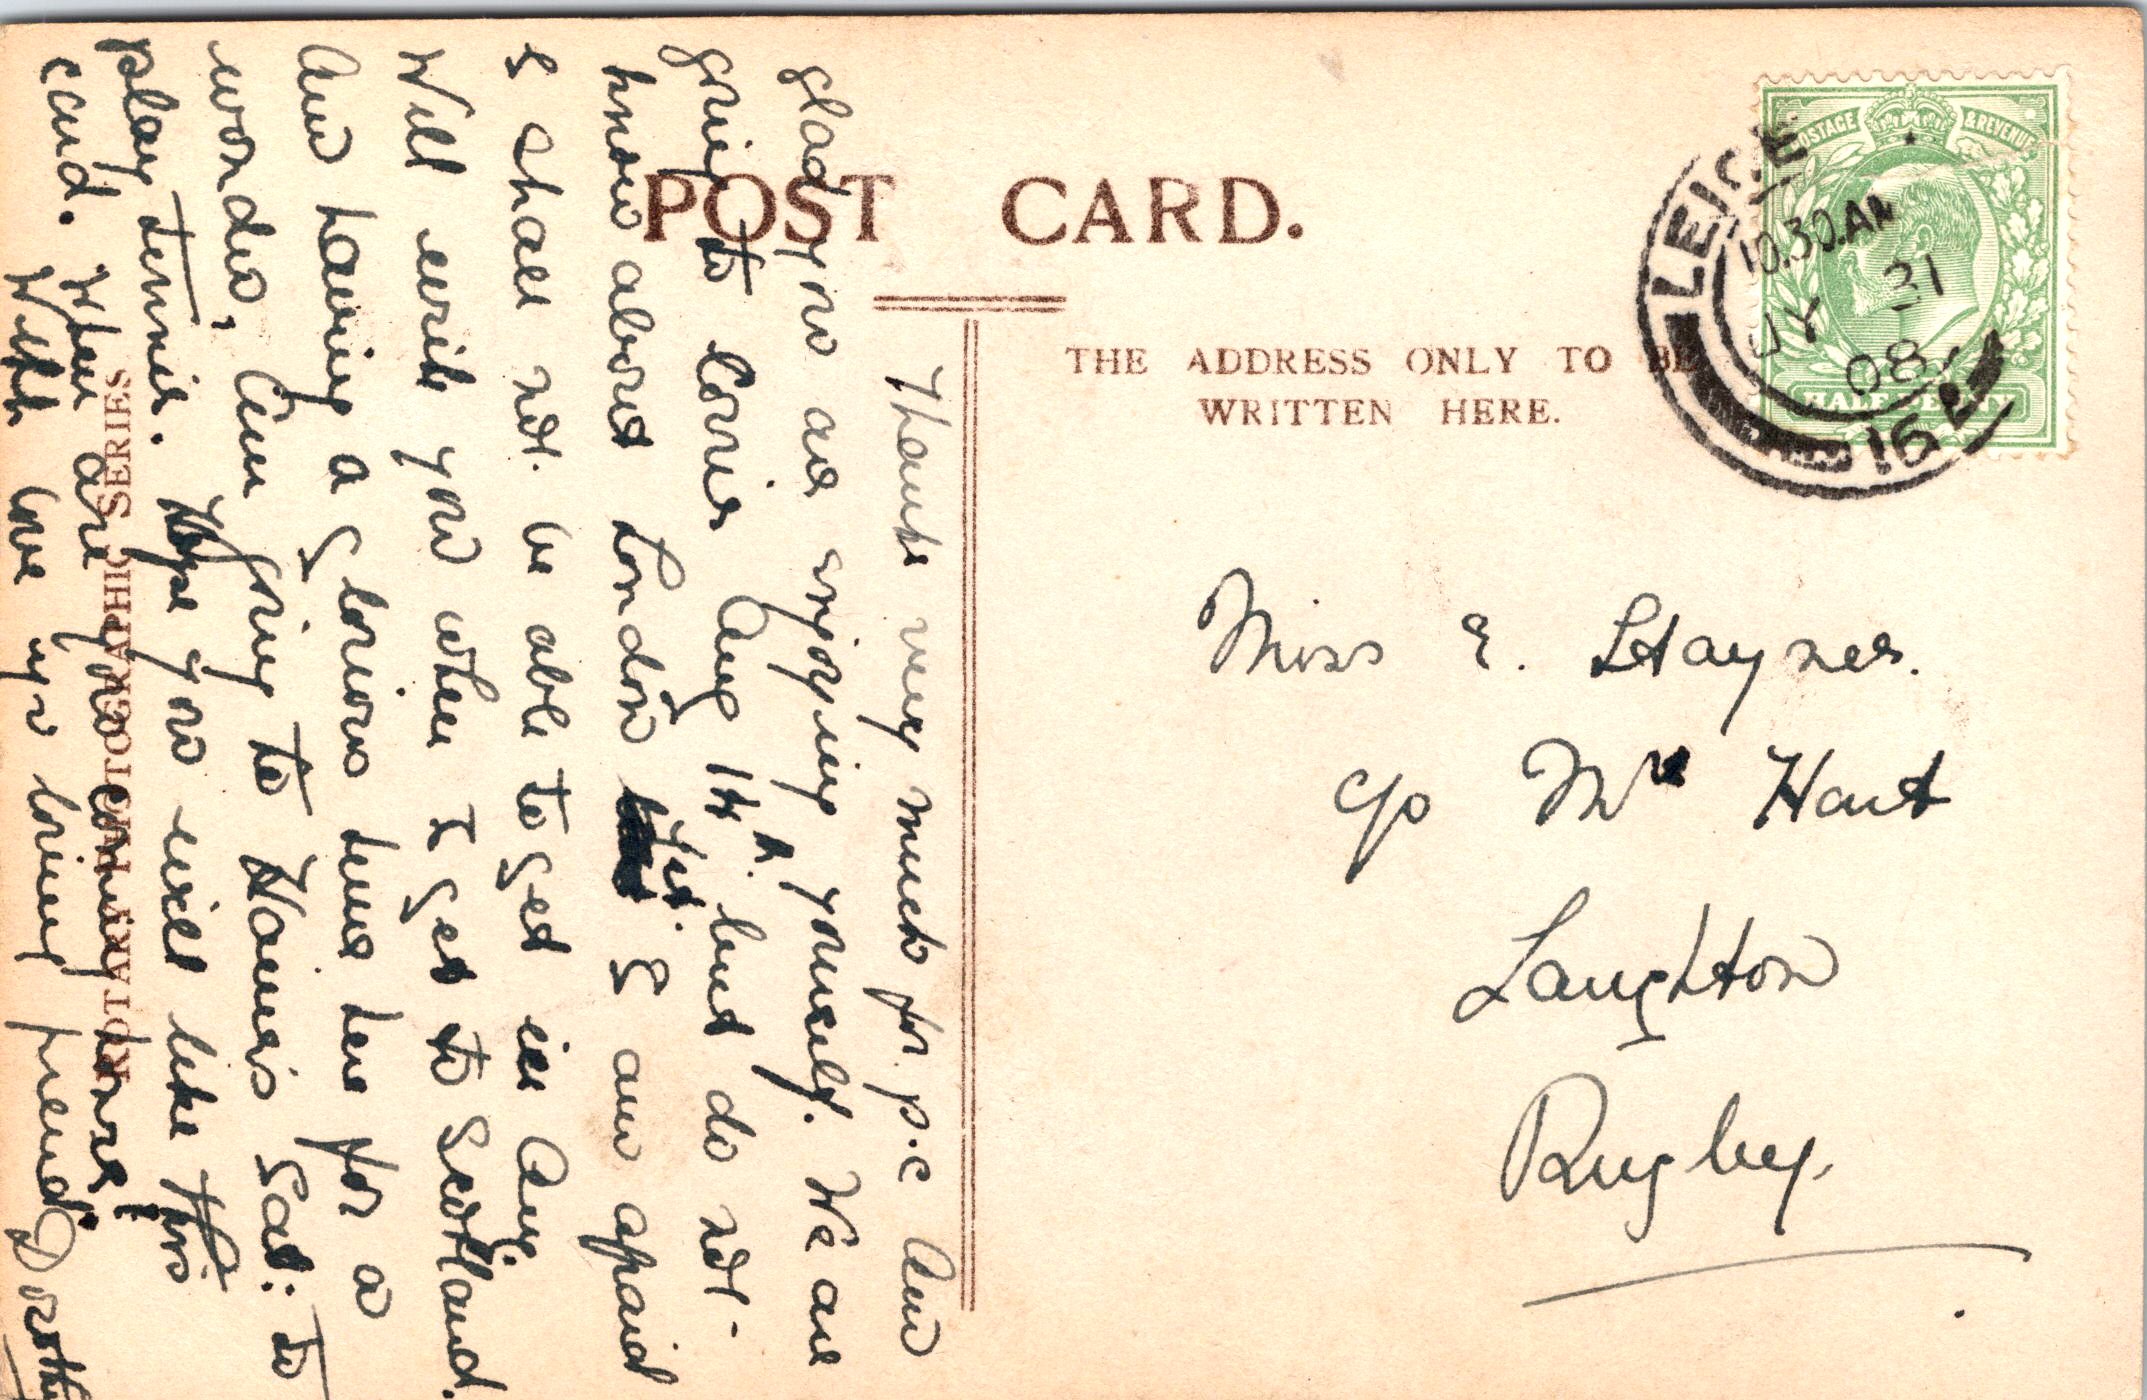 POST CARD.
THE ADDRESS ONLY TO BE
WRITTEN HERE.
POSTAGE & REVENUE
HALF PENNY
LEICE
10.30.AM
JY 31
08
162
Miss E. Haynes.
c/o Mrs Hart
Laughton
Rugby.
Thanks very much for p.c Am
glad you are enjoying yourself. We are
going to Lorrie Aug 14th. but do not
know about London yet. I am afraid
I shall not be able to get in Aug.
Will write you when I get to Scotland.
Am having a glorious time here for a
wonder, Am going to Hames Sat: to
play tennis. Hope you will like this
card. When are you coming home?
With love yr loving friend Dorothy
ROTARY PHOTOGRAPHIC SERIES